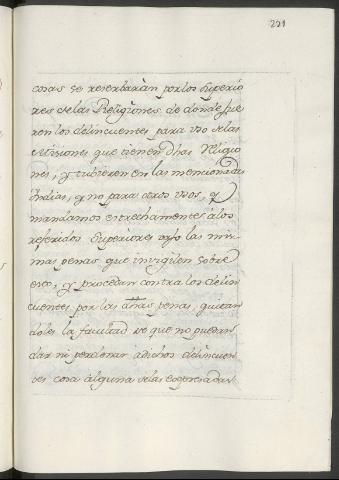 291
cosas se reserbaràn por los Superio
res de las Religiònes de donde fue
ren los delinquentes para uso de las
Missiones que tienen dhas Religio
nes, y tubieren en las mencionadas
Indias, y no para otros usos, y
mandamos estrechamente à los
referidos Superiores vajo las mis
mas penas que invigilen sobre
esto, y procedan contra los delin
cuentes por las dhas penas, quitan
doles la facultad de que no puedan
dar ni perdonar à dichos delincuen
tes cosa alguna de las expresadas